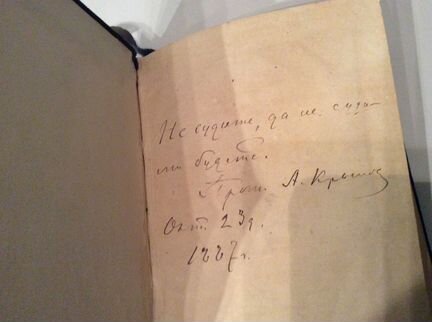 Не судите, да не суди-
ми будете.
Прот. А. Крылов
Окт. 23 д.
1887 г.